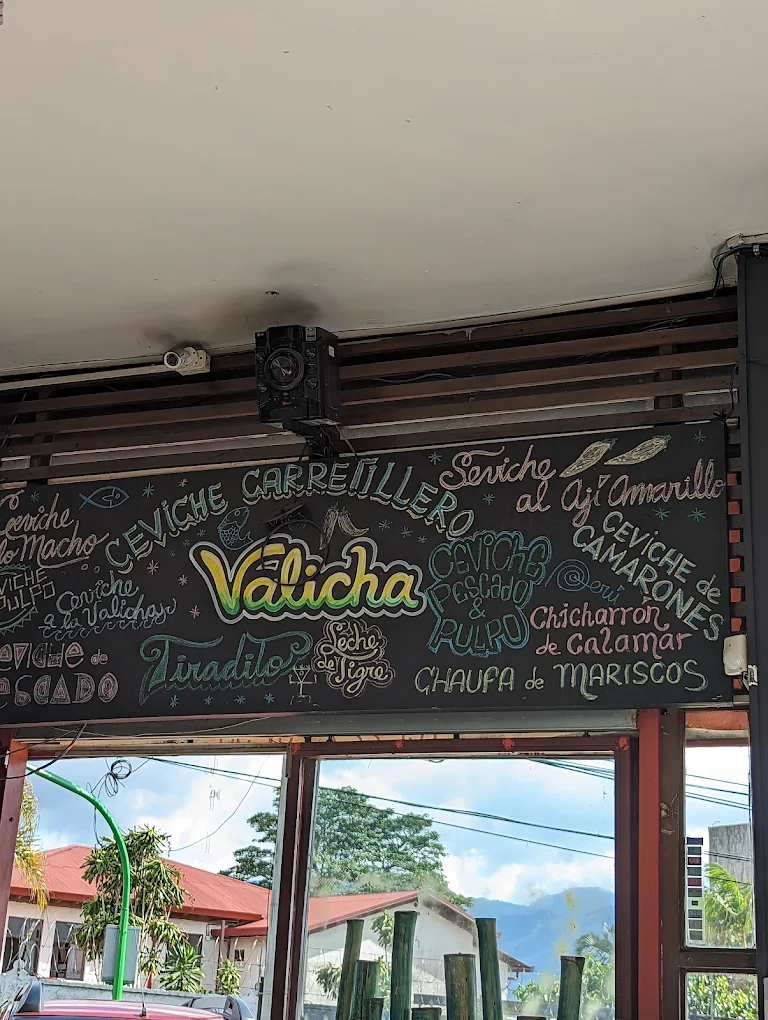 Ceviche
lo Macho
CEVICHE
PULPO
Ceviche
a la Valicha
CEVICHE de
PESCADO
CEVICHE CARRETILLERO
Valicha
Tiradito
Leche
de Tigre
Seviche
al Ají Amarillo
CEVICHE
PESCADO
&
PULPO
@eri
CEVICHE de
CAMARONES
Chicharrón
de Calamar
CHAUFA de MARISCOS